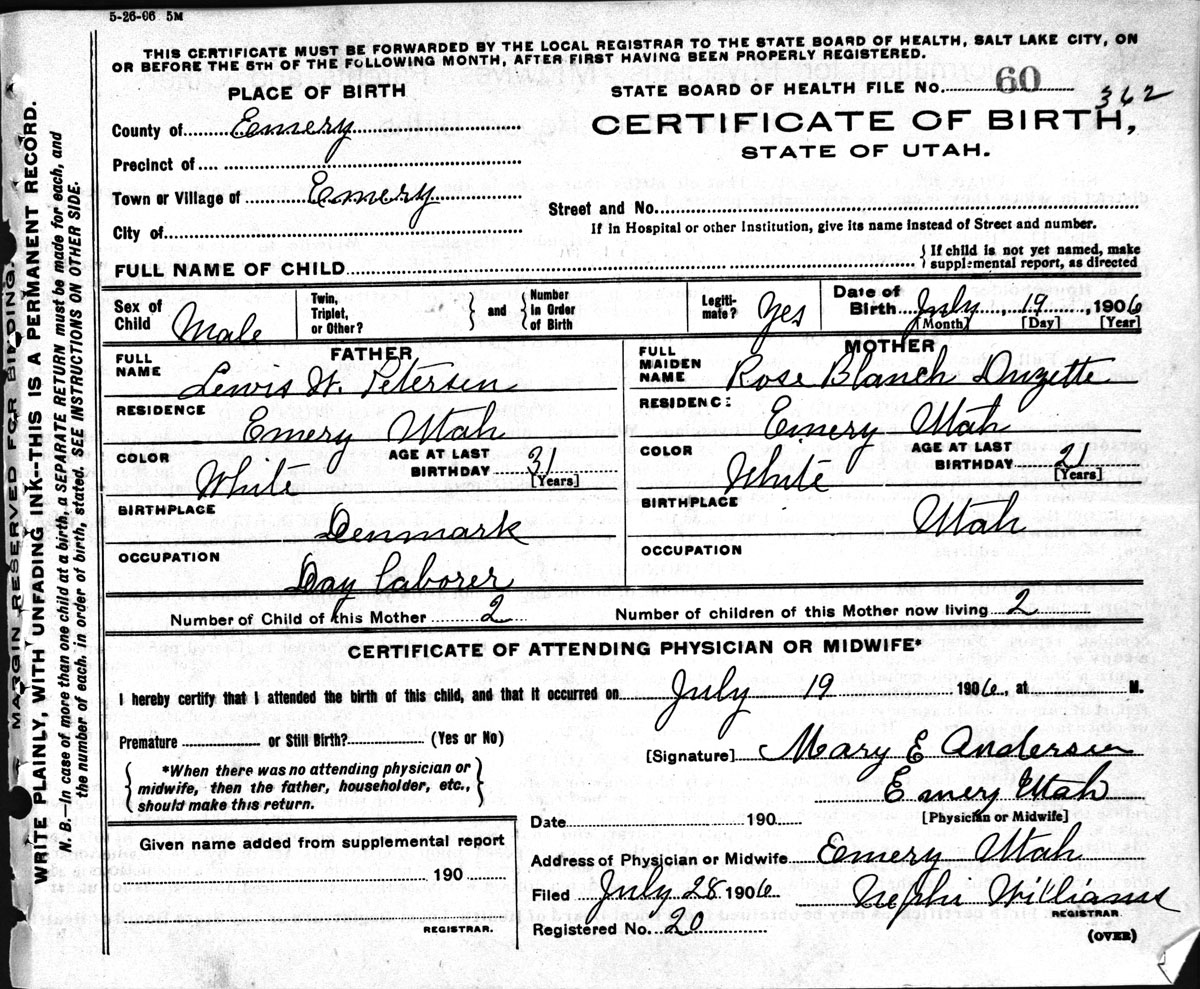 5-26-06 5M
THIS CERTIFICATE MUST BE FORWARDED BY THE LOCAL REGISTRAR TO THE STATE BOARD OF HEALTH, SALT LAKE CITY, ON
OR BEFORE THE 5TH OF THE FOLLOWING MONTH, AFTER FIRST HAVING BEEN PROPERLY REGISTERED.
PLACE OF BIRTH
STATE BOARD OF HEALTH FILE No. 60
362
County of Emery
CERTIFICATE OF BIRTH,
STATE OF UTAH.
Precinct of
Town or Village of Emery
Street and No.
If in Hospital or other Institution, give its name instead of Street and number.
City of
FULL NAME OF CHILD
{ If child is not yet named, make
supplemental report, as directed
Sex of Child Male
Twin, Triplet, or Other? } and { Number in Order of Birth
Legiti-mate? Yes
Date of Birth July, 19, 1906
[Month] [Day] [Year]
FATHER
FULL NAME Lewis W. Petersen
RESIDENCE Emery Utah
COLOR White
AGE AT LAST BIRTHDAY 31 [Years]
BIRTHPLACE Denmark
OCCUPATION Day laborer
MOTHER
FULL MAIDEN NAME Rose Blanch Duzette
RESIDENC: Emery Utah
COLOR White
AGE AT LAST BIRTHDAY 21 [Years]
BIRTHPLACE Utah
OCCUPATION
Number of Child of this Mother 2
Number of children of this Mother now living 2
CERTIFICATE OF ATTENDING PHYSICIAN OR MIDWIFE*
I hereby certify that I attended the birth of this child, and that it occurred on July 19 1906, at M.
Premature or Still Birth? (Yes or No)
[Signature] Mary E Andersen
{ *When there was no attending physician or
midwife, then the father, householder, etc.,
should make this return. }
Emery Utah
[Physician or Midwife]
Date 190
Given name added from supplemental report
190
REGISTRAR.
Address of Physician or Midwife Emery Utah
Filed July 28 1906
Nephi Williams
REGISTRAR.
Registered No. 20
(OVER)
MARGIN RESERVED FOR BINDING.
WRITE PLAINLY, WITH UNFADING INK--THIS IS A PERMANENT RECORD.
N. B.—In case of more than one child at a birth, a SEPARATE RETURN must be made for each, and
the number of each, in order of birth, stated. SEE INSTRUCTIONS ON OTHER SIDE.